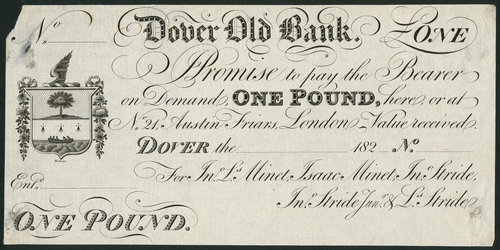 No. Dover Old Bank. £ONE
I Promise to pay the Bearer
on Demand, ONE POUND, here, or at
No. 21, Austin Friars, London Value received
DOVER the 182 No.
For Jno. Ls. Minet, Isaac Minet, Jno. Stride,
Entd. Jno. Stride Junr. & Ls. Stride
ONE POUND.